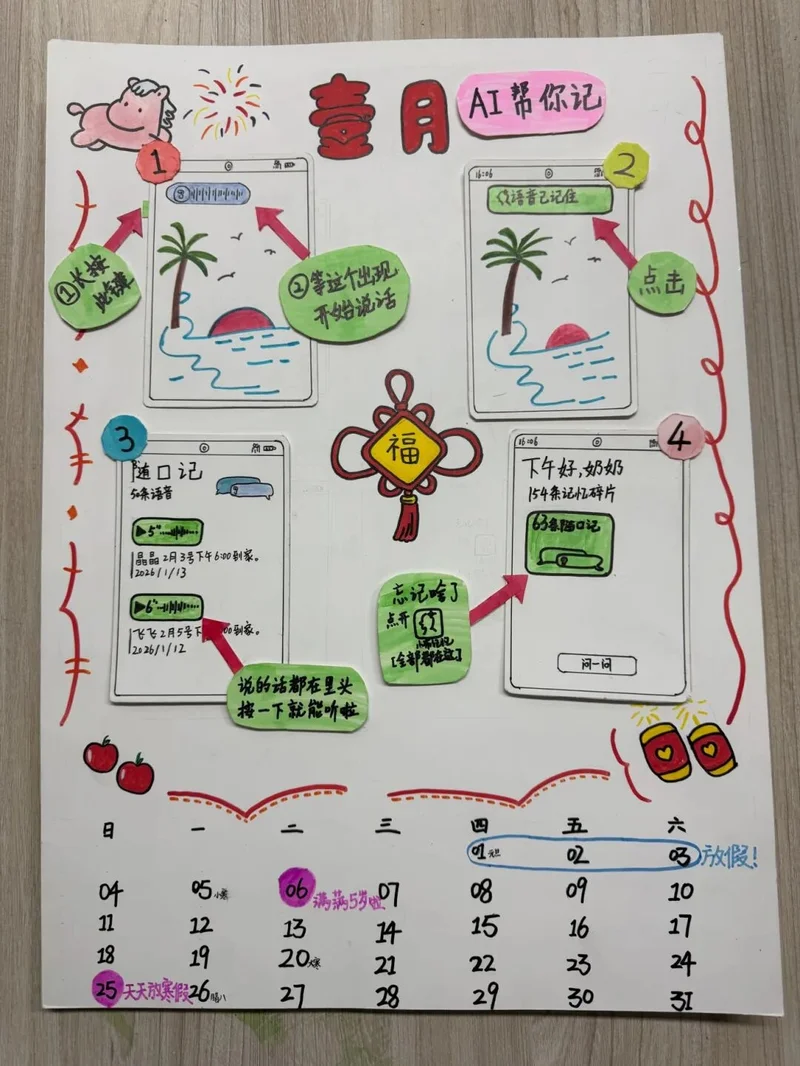 壹月
AI帮你记
1
①长按
此键
②等这个出现
开始说话
2
16:06
语音已记住
点击
福
3
随口记
50条语音
5"
晶晶2月3号下午6:00到家。
2026/1/13
6"
飞飞2月5号下 00到家。
2026/1/12
说的话都在里头
按一下就能听啦
4
16:06
下午好,奶奶
154条记忆碎片
63条随口记
问一问
忘记啥了
点开
[全部都在这]
日 一 二 三 四 五 六
01元旦 02 03 放假!
04 05小寒 06 满满5岁啦 07 08 09 10
11 12 13 14 15 16 17
18 19 20大寒 21 22 23 24
25 天天放寒假 26腊八 27 28 29 30 31